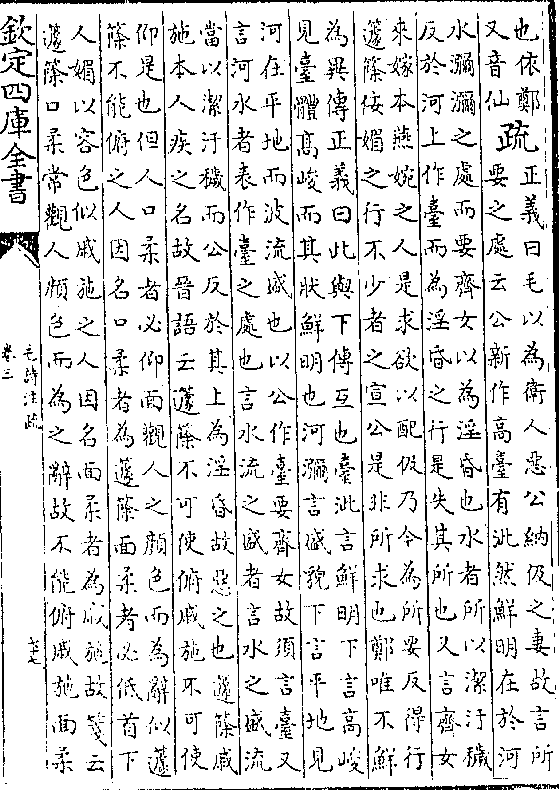 也依鄭
又音仙
疏
正義曰毛以為衛人惡公納伋之妻故言所
要之處云公新作高臺有泚然鮮明在於河
水瀰瀰之處而要齊女以為淫昏也水者所以潔汙穢
反於河上作臺而為淫昏之行是失其所也又言齊女
來嫁本燕婉之人是求欲以配伋乃令為所要反得行
籧篨佞媚之行不少者之宣公是非所求也鄭唯不鮮
為異傳正義曰此與下傳互也臺泚言鮮明下言高峻
見臺體高峻而其狀鮮明也河瀰言盛貌下言平地見
河在平地而波流盛也以公作臺要齊女故須言臺又
言河水者表作臺之處也言水流之盛者言水之盛流
當以潔汙穢而公反於其上為淫昏故惡之也籧篨戚
施本人疾之名故晉語云籧篨不可使俯戚施不可使
仰是也但人口柔者必仰面觀人之顏色而為辭似籧
篨不能俯之人因名口柔者為籧篨面柔者必低首下
人媚以容色似戚施之人因名面柔者為戚施故箋云
籧篨口柔常觀人顏色而為之辭故不能俯戚施面柔
欽定四庫全書
毛詩注疏
卷三